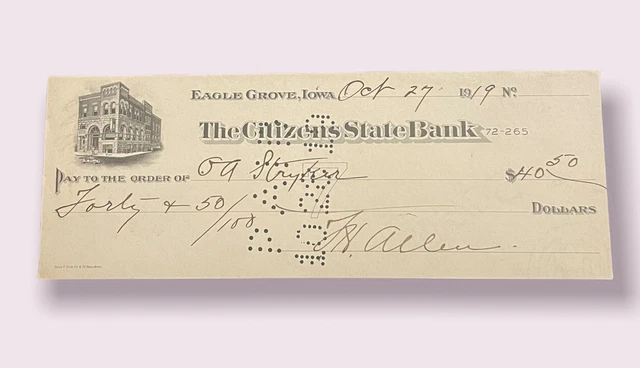 EAGLE GROVE, IOWA Oct 27 1919 No.
The Citizens State Bank 72-265
PAY TO THE ORDER OF O A Stryker $40 50
Forty & 50/100 DOLLARS
F H Allen